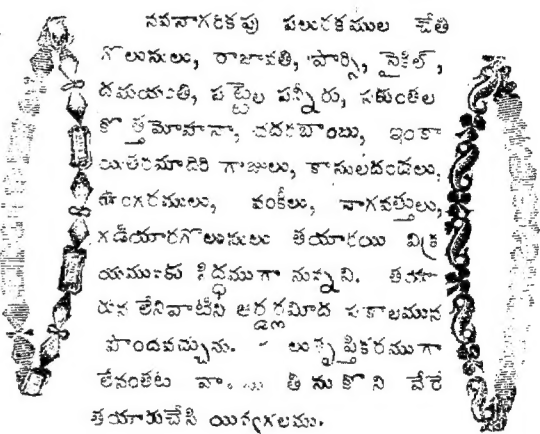 నవనాగరికపు పలురకముల చేతి
గొలుసులు, రాజావతి, పార్సి, సైకిల్,
దమయంతి, పట్టెల పన్నీరు, సకుంతల
కొత్తమోహనా, చదరబొంబు, ఇంకా
యితరమాదిరి గాజులు, కాసులదండలు,
ఉంగరములు, వంకీలు, నాగవత్తులు,
గడియారగొలుసులు తయారయి విక్ర
యమునకు సిద్ధముగా నున్నవి. తయా
రున లేనివాటిని ఆర్డర్లమీద సకాలమున
పొందవచ్చును. తృప్తికరముగా
లేనంతట తీసుకొని వేరే
తయారుచేసి యివ్వగలము.